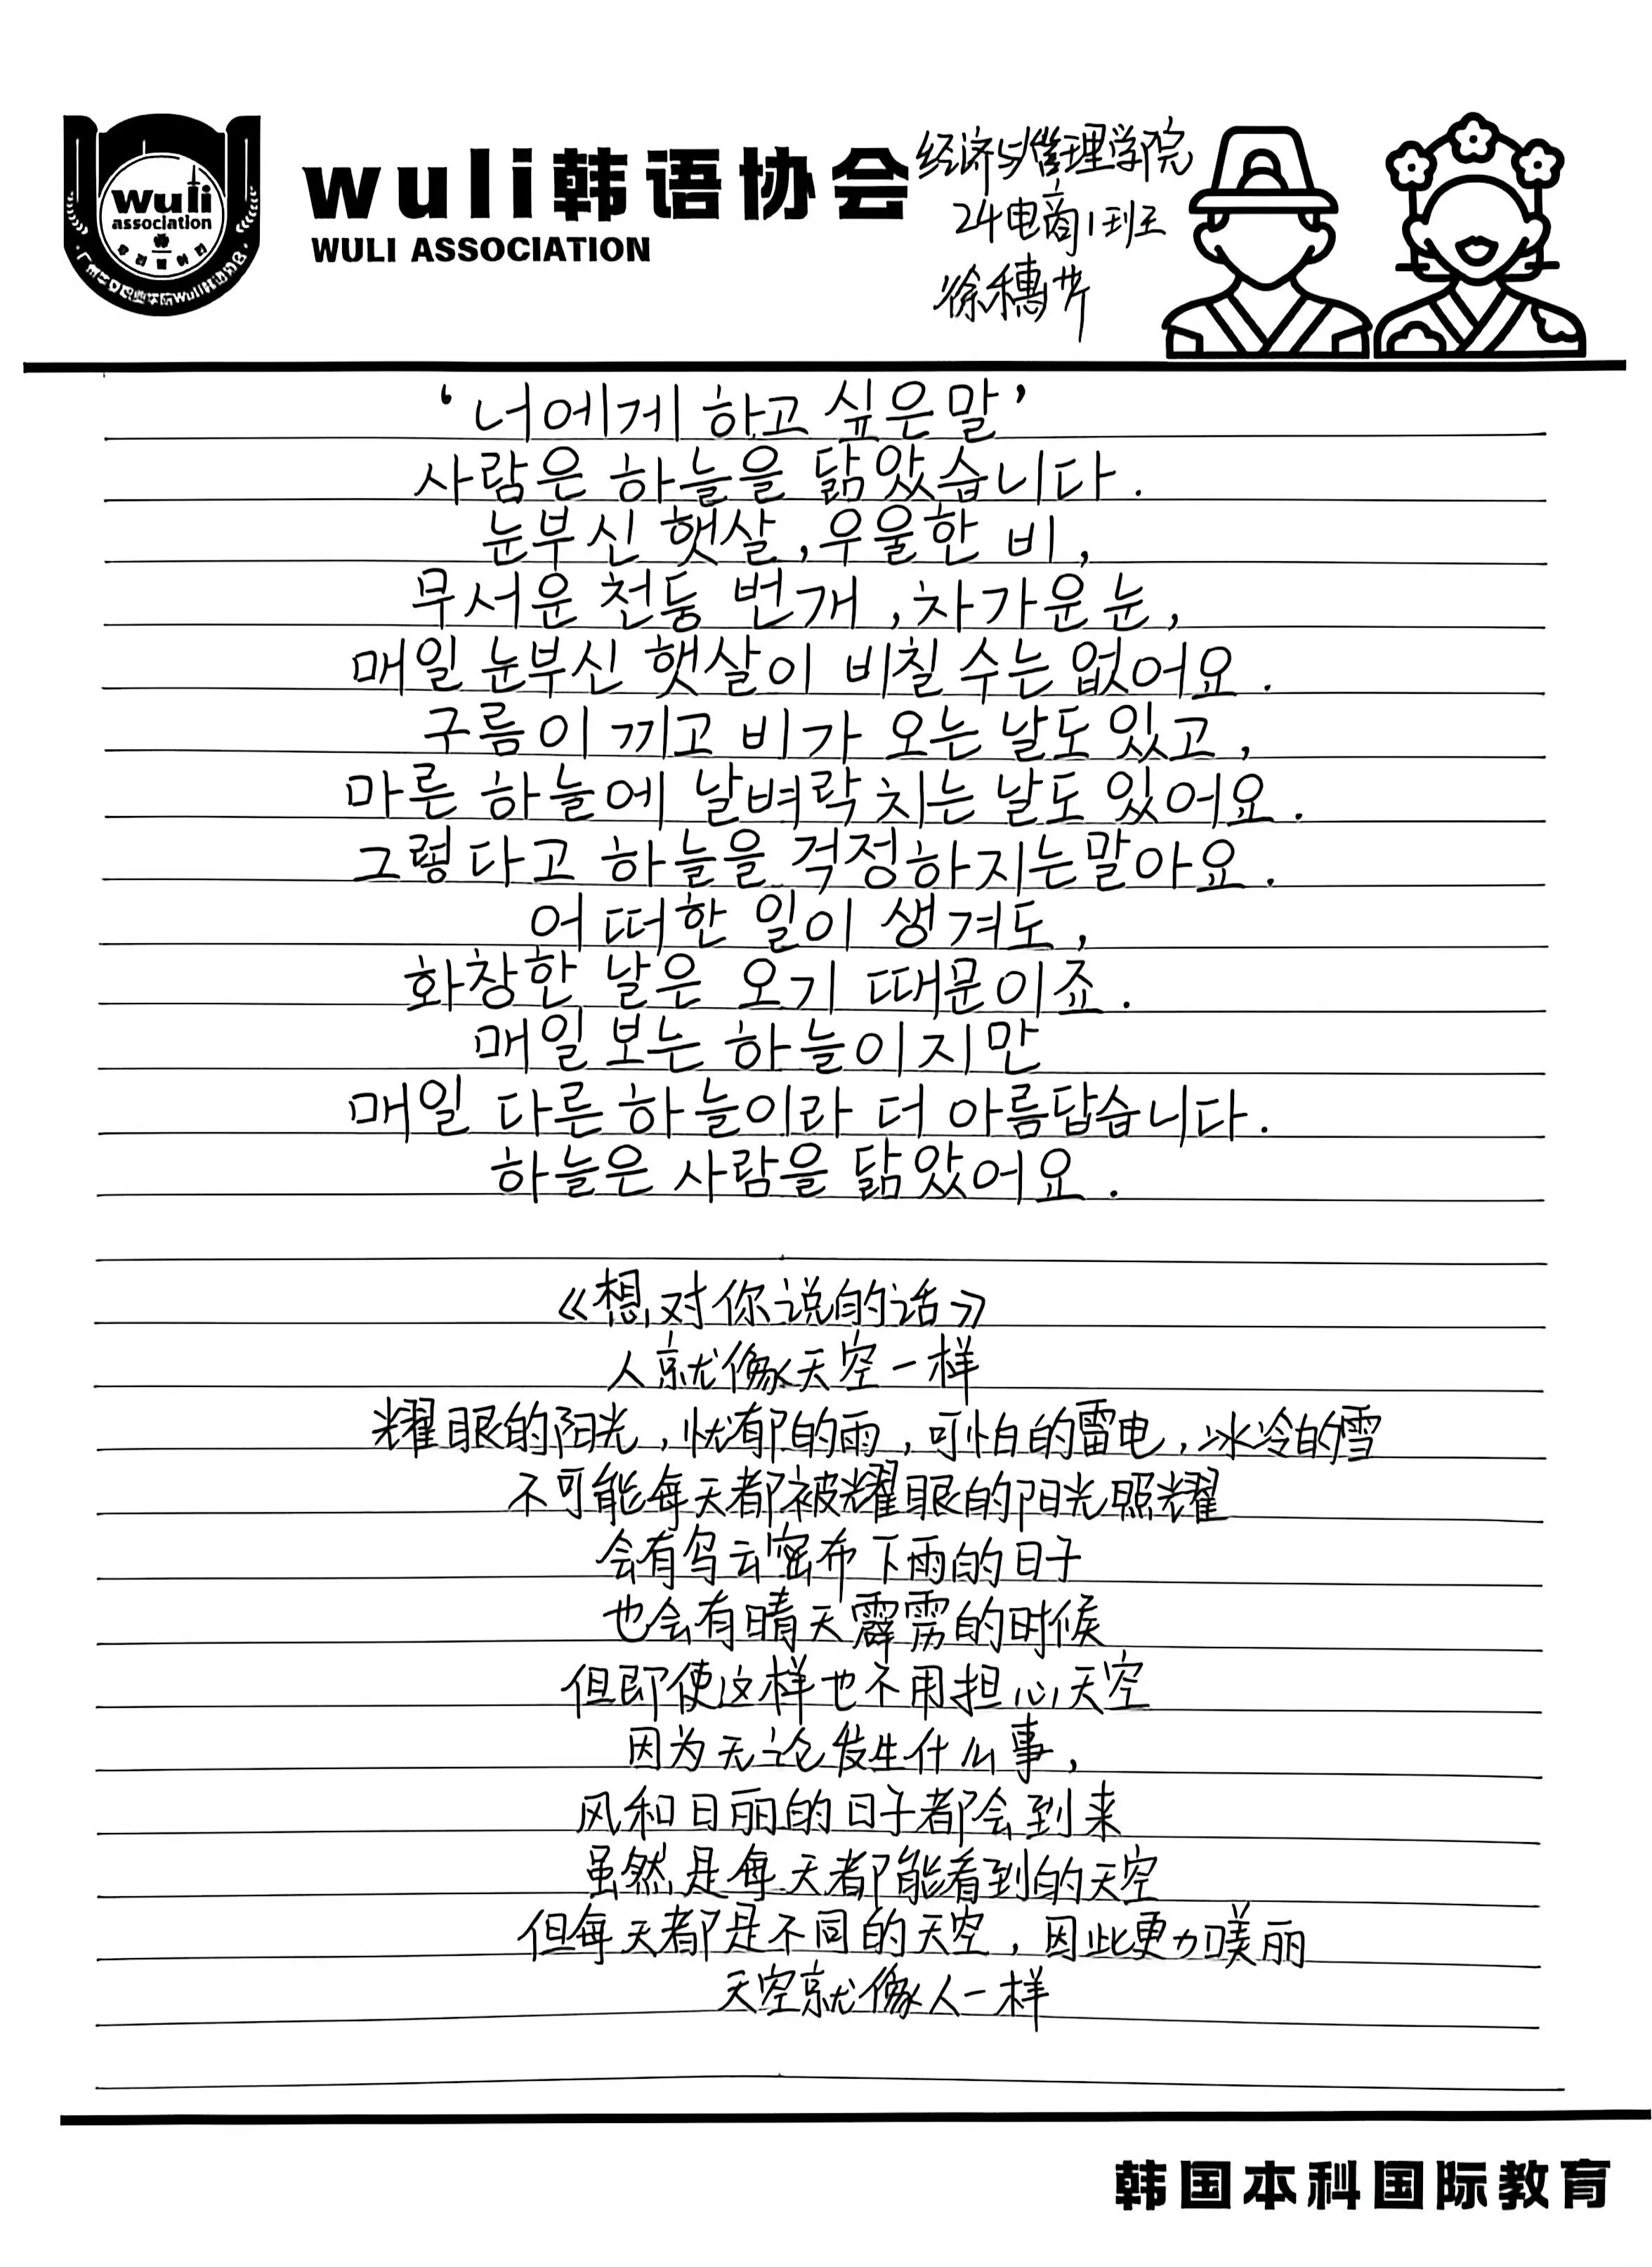 wuli
association
wuli韩语协会
WULI ASSOCIATION
经济与管理学院
24电商1班
徐穗芹
‘너에게 하고 싶은말’
사람은 하늘을 닮았습니다.
눈부신 햇살,우울한 비,
무서운 천둥 번개,차가운눈,
매일 눈부신 햇살이 비칠 수는 없어요.
구름이 끼고 비가 오는 날도 있고,
마른 하늘에 날벼락 치는 날도 있어요.
그렇다고 하늘을 걱정하지는말아요.
어떠한 일이 생겨도,
화창한 날은 오기 때문이죠.
매일 보는 하늘이지만
매일 다른 하늘이라 더 아름답습니다.
하늘은 사람을 닮았어요.
《想对你说的话》
人就像天空一样
耀眼的阳光,忧郁的雨,可怕的雷电,冰冷的雪
不可能每天都被耀眼的阳光照耀
会有乌云密布下雨的日子
也会有晴天霹雳的时候
但即使这样也不用担心天空
因为无论发生什么事,
风和日丽的日子都会到来
虽然是每天都能看到的天空
但每天都是不同的天空,因此更加美丽
天空就像人一样
韩国本科国际教育